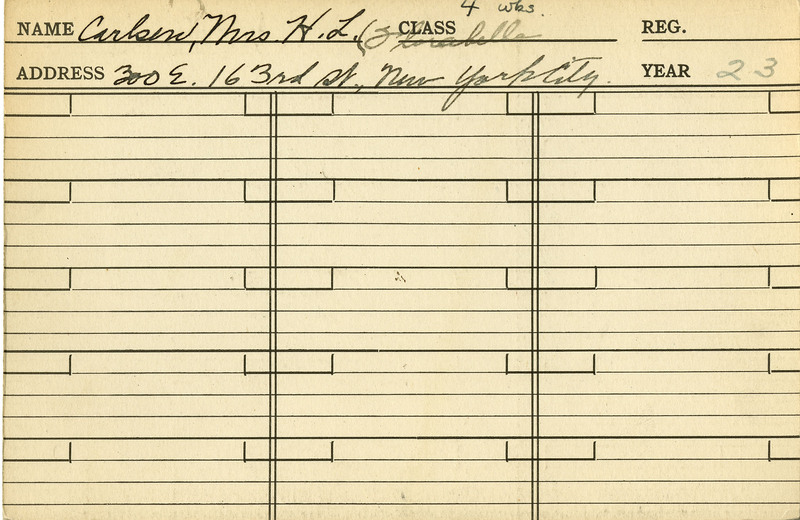 4 wks.
NAME Carlsen, Mrs. H. L. (Florabelle CLASS REG.
ADDRESS 300 E. 163rd St., New York City. YEAR 23